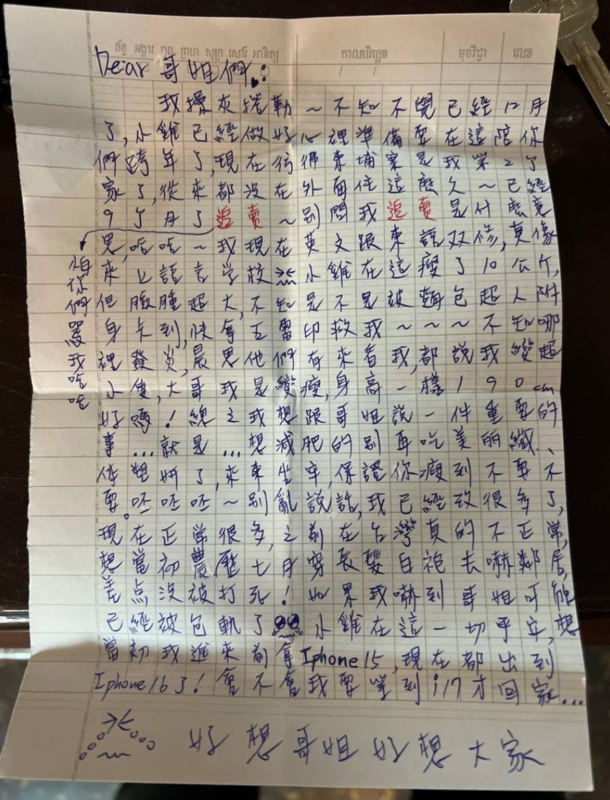 ច័ន្ទ អង្គារ ពុធ ព្រហ សុក្រ សៅរ៍ អាទិត្យ កាលបរិច្ឆេទ មុខវិជ្ជា លេខ
Dear 哥姐們:
我操灰捲勒～不知不覺已經12月
了,小雜已經做好心裡準備要在這陪你
們跨年了,現在彷彿柬埔寨是我第二個
家了,從來都沒在外面住這麼久～已經
9個月了追賣～別問我追賣是什麼意
思,哈哈～我現在英文跟柬語双修,真像
來上語言學校 小雜在這瘦了10公斤,
但臉腫超大,不知是不是被麵包超人附
身卡到,快拿五雷印救我～～～不知哪
裡發炎,晨思他們有來看我,都說我變超
小隻,大哥我是變瘦,身高一樣190cm
好嗎!總之我想跟哥姐說一件重要的
事...就是...想減肥的別再吃美麗纖、
佳塑妍了,來柬坐牢,保證你瘦到不要不
要。呸呸呸～別亂說話,我已經改很多了,
現在正常很多,之前在台灣真的不正常,
想當初農歷七月穿長髮白袍去嚇鄰居,
差点沒被打死!如果我嚇到哥姐可能
已經被包軌了 小雜在這一切平安,想
當初我進來前拿Iphone15,現在都出到
Iphone16了!會不會我要等到i17才回家...
怕你們罵我哈哈
好想哥姐好想大家